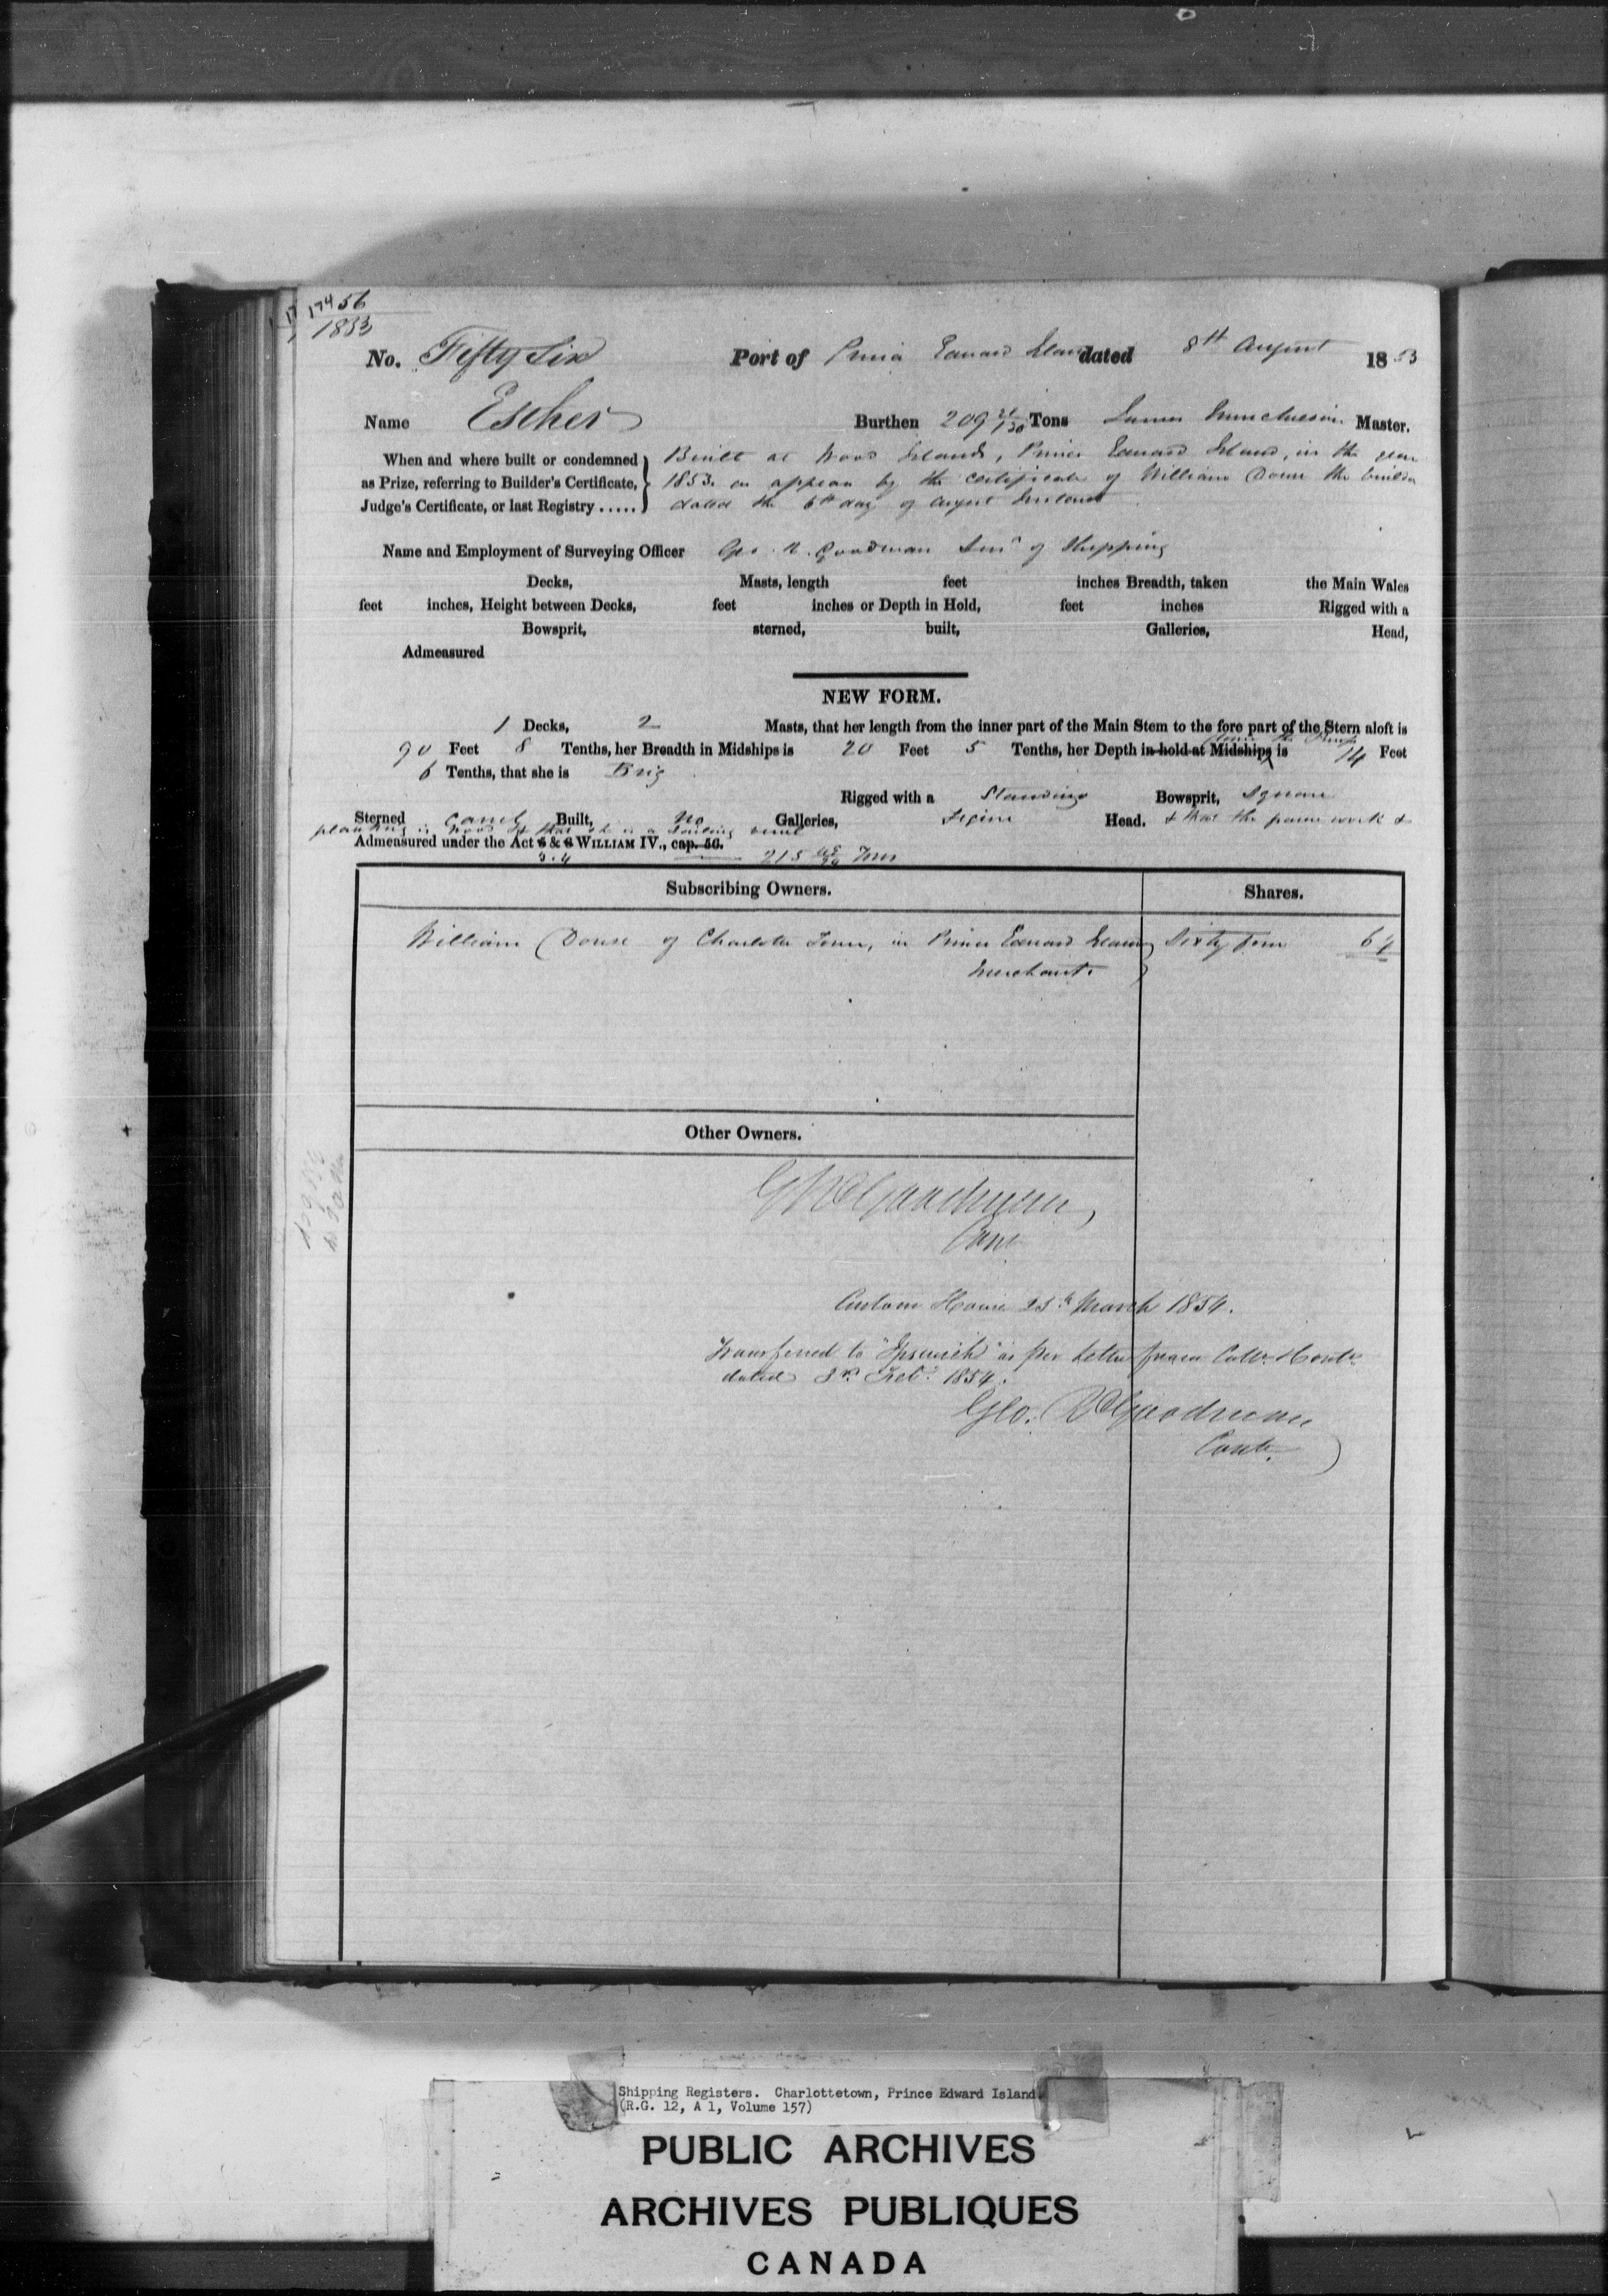 56
1853
No. Fifty Six Port of Prince Edward Island dated 8th August 1853
Name Escher Burthen 209 Tons James Master.
When and where built or condemned Built at Wood Islands, Prince Edward Island, in the year
as Prize, referring to Builder's Certificate, 1853. as appears by the certificate of William Douse the builder
Judge's Certificate, or last Registry ..... dated the 6th day of August Instant
Name and Employment of Surveying Officer Geo. R. Goodman Survr of Shipping
Decks, Masts, length feet inches Breadth, taken the Main Wales
feet inches, Height between Decks, feet inches or Depth in Hold, feet inches Rigged with a
Bowsprit, sterned, built, Galleries, Head,
Admeasured
NEW FORM.
1 Decks, 2 Masts, that her length from the inner part of the Main Stem to the fore part of the Stern aloft is
90 Feet 8 Tenths, her Breadth in Midships is 20 Feet 5 Tenths, her Depth in hold at Midships is 14 Feet
6 Tenths, that she is Brig
Rigged with a Standing Bowsprit, Square
Sterned Carvel Built, No Galleries, Figure Head. & that the frame work &
planking is Wood & that she is a Sailing vessel
Admeasured under the Act 5 & 6 WILLIAM IV., cap. 56.
3.4 215 Tons
Subscribing Owners. Shares.
William Douse of Charlotte Town, in Prince Edward Island Sixty four 64
Merchant.
Other Owners.
G R Goodman,
Custom House 25th March 1854.
Transferred to "Ipswich" as per Letter from Collr. & Contr.
dated 3rd Feby. 1854.
Geo. R Goodman
Contr.
Shipping Registers. Charlottetown, Prince Edward Island
(R.G. 12, A 1, Volume 157)
PUBLIC ARCHIVES
ARCHIVES PUBLIQUES
CANADA